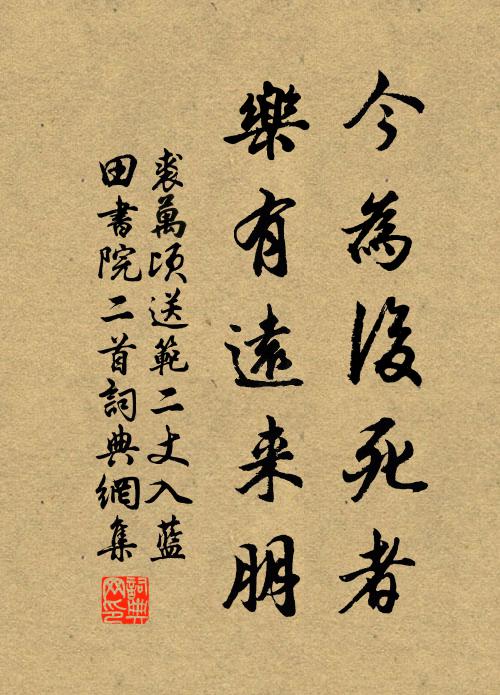 今為後死者
樂有遠来朋
裘萬頃送範二丈入藍
田書院二首詞典網集
詞典
网印